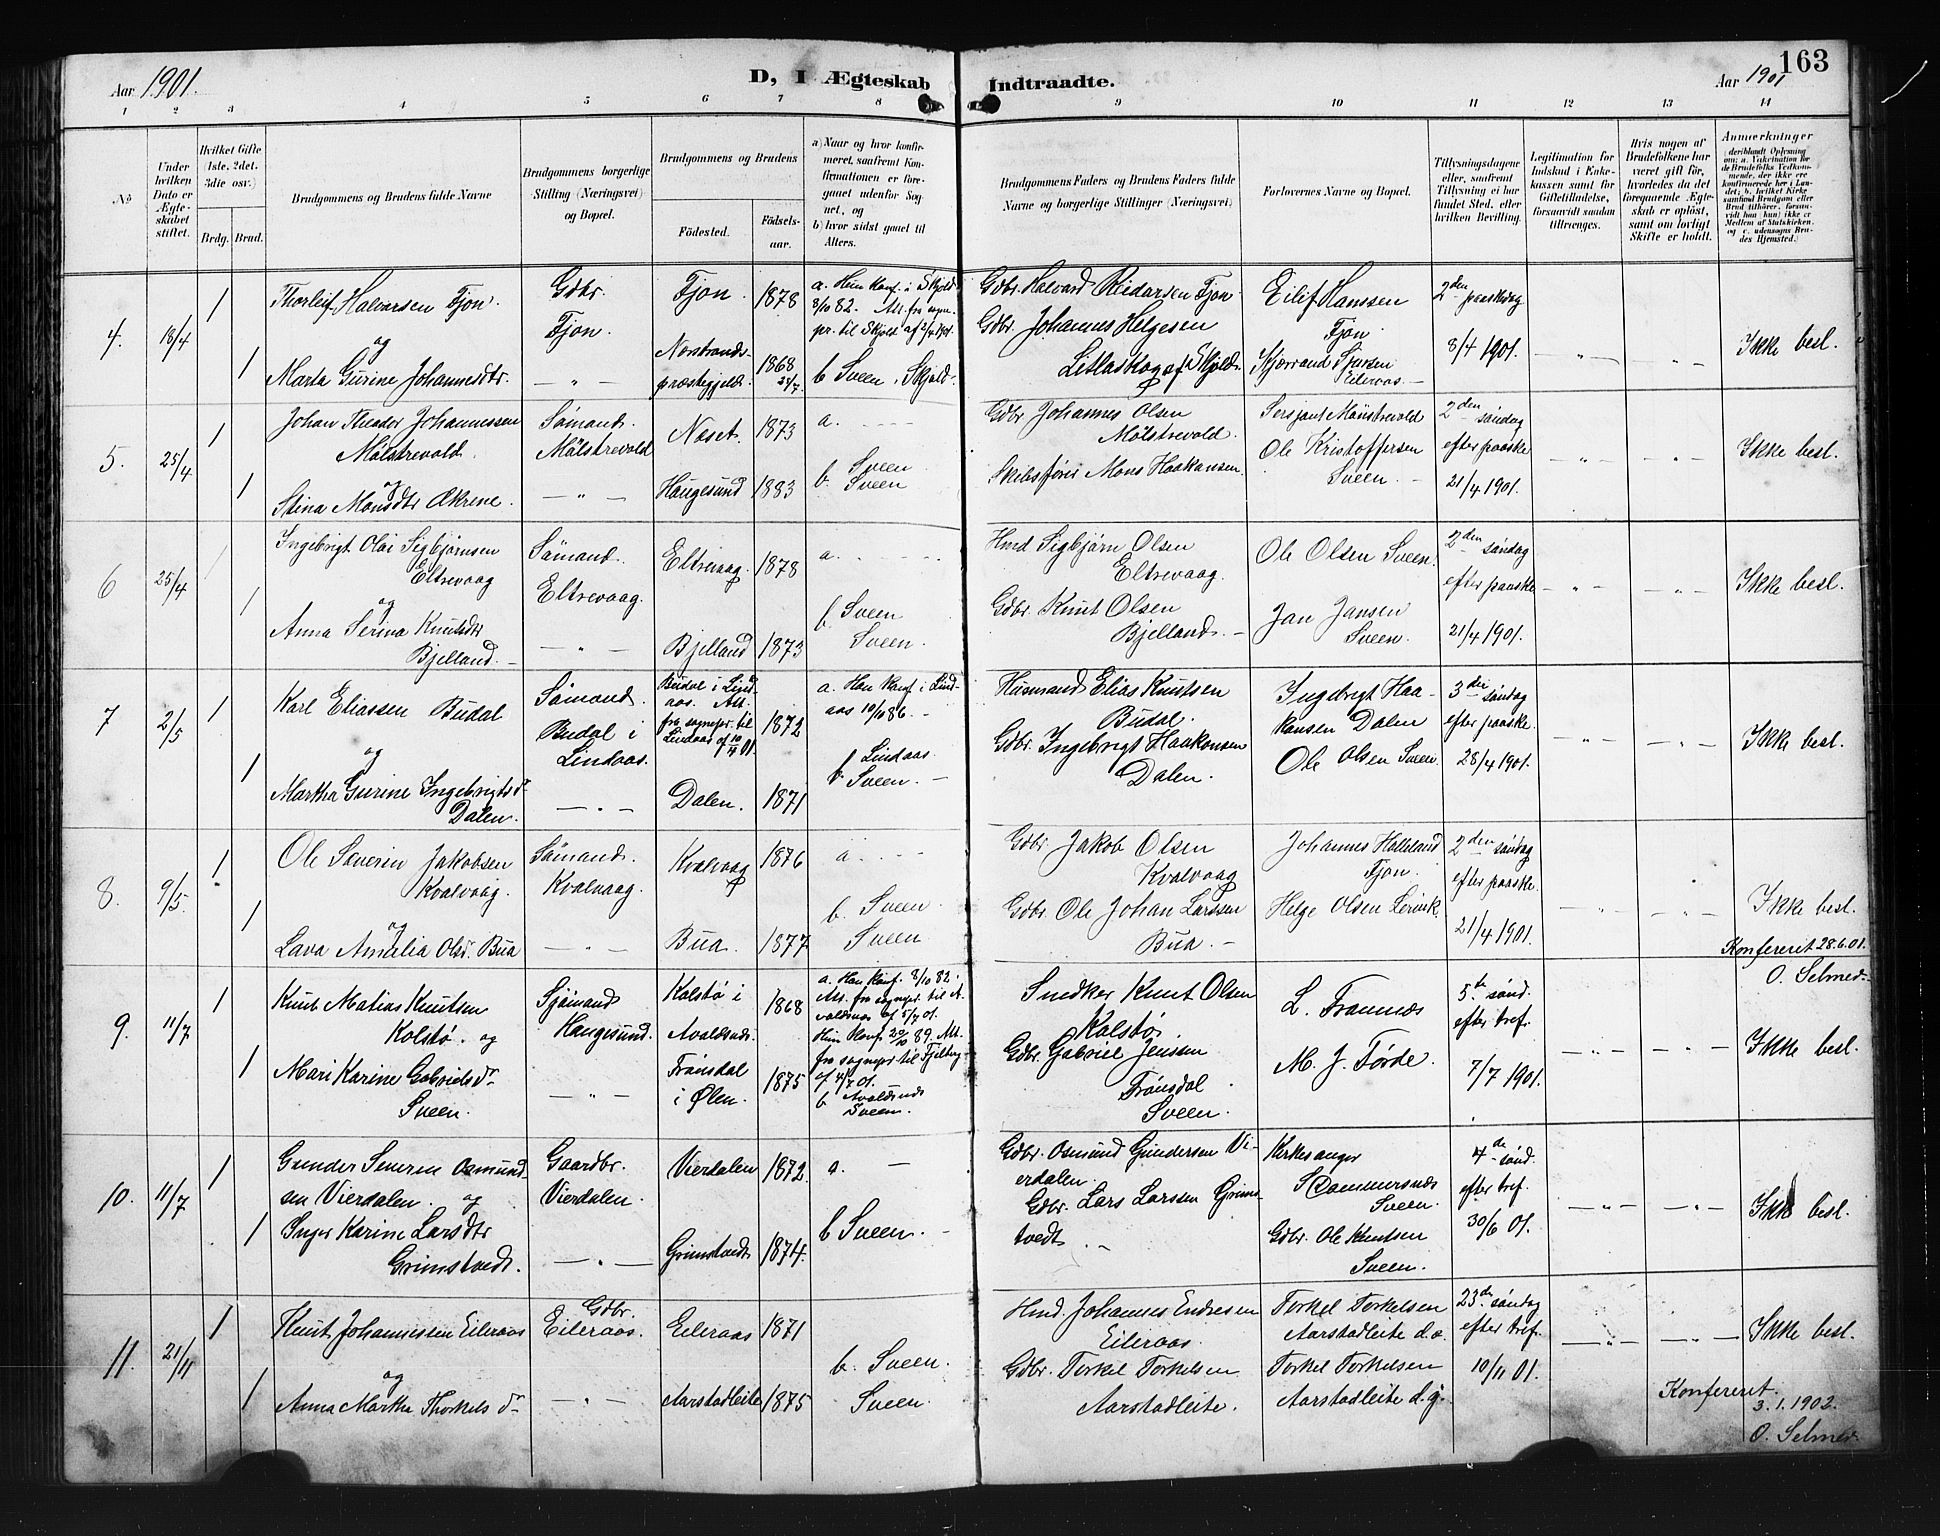 163
Aar 1901.
D, I Ægteskab Indtraadte.
Aar 1901
1 2 3 4 5 6 7 8 9 10 11 12 13 14
No
Under hvilken Dato er Ægteskabet stiftet.
Hvilket Gifte (1ste, 2det, 3die osv.)
Brdg. Brud.
Brudgommens og Brudens fulde Navne
Brudgommens borgerlige Stilling (Næringsvei) og Bopæl.
Brudgommens og Brudens
Fødested. Fødselsaar.
a) Naar og hvor konfirmeret, saafremt Konfirmationen er foregaaet udenfor Sognet, og
b) hvor sidst gaaet til Alters.
Brudgommens Faders og Brudens Faders fulde Navne og borgerlige Stillinger (Næringsvei)
Forlovernes Navne og Bopæl.
Tillysningsdagene eller, saafremt Tillysning ei har fundet Sted, efter hvilken Bevilling.
Legitimation for Indskud i Enkekassen samt for Giftetilladelse, forsaavidt saadan tiltrænges.
Hvis nogen af Brudefolkene har været gift før, hvorledes da det foregaaende Ægteskab er opløst, samt om lovligt Skifte er holdt.
Anmærkninger
(deriblandt Oplysning om: a. Vakcination for de Brudefolks Vedkommende, der ikke ere konfirmerede her i Landet; b. hvilket Kirkesamfund Brudgom eller Brud tilhører, forsaavidt han (hun) ikke er Medlem af Statskirken, og c. udensogns Brudes Hjemsted.)
4. 18/4 1
Thorleif Halvorsen Fjon.
og
1 Marta Gurine Johannesdtr.
Gdbr.
Fjon.
— " —
Fjon. 1878
præstegjeld. 1868 24/7
a. Hun konf. i Skjold 8/10 82. Att. fra sogn.pr. til Skjold af
b Sveen, Skjold.
Gdbr. Halvard Reidarsen Fjon.
Gdbr. Johannes Helgesen
Litlaskog af Skjold.
Eilef Hanssen
Fjon.
Eileraas. —
2den paaskedag
8/4 1901.
— " — — " —
Ikke besl.
5. 25/4 1
Johan Theodor Johannessen
Mölstrevold.
og
1 Stina Monsdtr Økrene.
Sömand.
Mölstrevold
— " —
Næset. 1873
Haugesund 1883
a. - - - -
b Sveen
Sveen
Gdbr Johannes Olsen
Mölstrevold.
Skibsfører Mons Haakonsen.
Sersjant Mölstrevold
Ole Kristoffersen
Sveen. —
2den söndag
efter paaske
21/4 1901.
— " — — " —
Ikke besl.
6 25/4 /
Ingebrigt Olai Sigbjörnsen
Eltrevaag
og
1 Anna Serina Knutsdtr
Bjelland. —
Sömand.
Eltrevaag.
— " —
Eltrevaag. 1878
Bjelland 1873
a. - - - -
b Sveen
Sveen.
Hmd Sigbjörn Olsen
Eltrevaag.
Gdbr. Knut Olsen
Bjelland. —
Ole Olsen Sveen.
Jan Jansen
Sveen.
2den söndag
efter paaske
21/4 1901.
— " — — " —
Ikke besl.
7 2/5 1
Karl Eliassen Budal
og
1 Martha Gurine Ingebrigtsdr
Dalen.
Sömand.
Budal i
Lindaas.
— " —
Budal i Lindaas. Att. fra sognepr. til Lindaas af 10/4 01. 1872
Dalen. 1871
a. Han konf. i Lindaas 10/10 86. —
b Lindaas.
Sveen. —
Husmand Elias Knutsen
Budal.
Gdbr. Ingebrigt Haakonsen
Dalen.
Ingebrigt Haakonsen Dalen
Ole Olsen Sveen.
3die söndag
efter paaske
28/4 1901.
— " — — " —
Ikke besl.
8. 9/5. 1
Ole Severin Jakobsen
Kvalvaag.
og
1 Lava Amalia Olsdr. Bua
Sömand.
Kvalvaag.
— " —
Kvalvaag 1876
Bua. 1877
a. - - -
b. Sveen.
Sveen
Gdbr. Jakob Olsen
Kvalvaag
Gdbr. Ole Johan Larssen
Bua. —
Johannes Halleland
Fjon.
Helge Olsen Lervik.
2den söndag
efter paaske.
21/4 1901.
— " — — " —
Ikke besl.
Konfereret 28.6.01.
O. Selmer.
9. 11/7 1
Knut Matias Knutsen
Kolstø. og
1 Mari Karine Gabrielsdr
Sveen.
Sjömand
Haugesund.
— " —
Kolstø i 1868
Avaldsnes.
i Ølen. 1875
a. Han konf. 8/10 82. Att. fra sognepr. til Avaldsnes af 5/7 01.
Hun konf. 20/10 89. Att. fra sognepr til Fjelberg af 4/7 01.
b Avaldsnes
Sveen.
Snedker Knut Olsen
Kolstø.
Gdbr. Gabriel Jenssen
Sveen.
M. J. Førde.
5te sönd.
efter tref.
7/7 1901.
— " — — " —
Ikke besl.
10. 11/7 1
Gunder Severin Osmundsen Vierdalen. og
1 Inger Karine Larsdtr
Grimstvedt.
Gaardbr.
Vierdalen.
— " —
Vierdalen 1872.
Grimstvedt 1874.
a. —
b Sveen. —
Gdbr. Osmund Gundersen Vierdalen.
Gdbr. Lars Larssen Grimstvedt.
Kirkesanger
Sveen.
Gdbr. Ole Knutsen
Sveen.
4de sönd.
efter tref.
30/6 01.
— " — — " —
Ikke besl.
11. 21/11 1
Knut Johannessen Eileraas
og
1 Anna Martha Thorkelsdr
Gdbr.
Eileraas.
— " —
Eileraas 1871
Aarstadleite 1875
b. Sveen.
Sveen.
Hmd. Johannes Endresen
Eileraas.
Gdbr. Torkel Torkelsen
Aarstadleite.
Torkel Torkelsen
Aarstadleite d.æ.
Torkel Torkelsen
Aarstadleite d.y.
23de söndag
efter tref.
10/11 01.
— " — — " —
Ikke besl.
Konfereret.
3.1.1902.
O. Selmer.